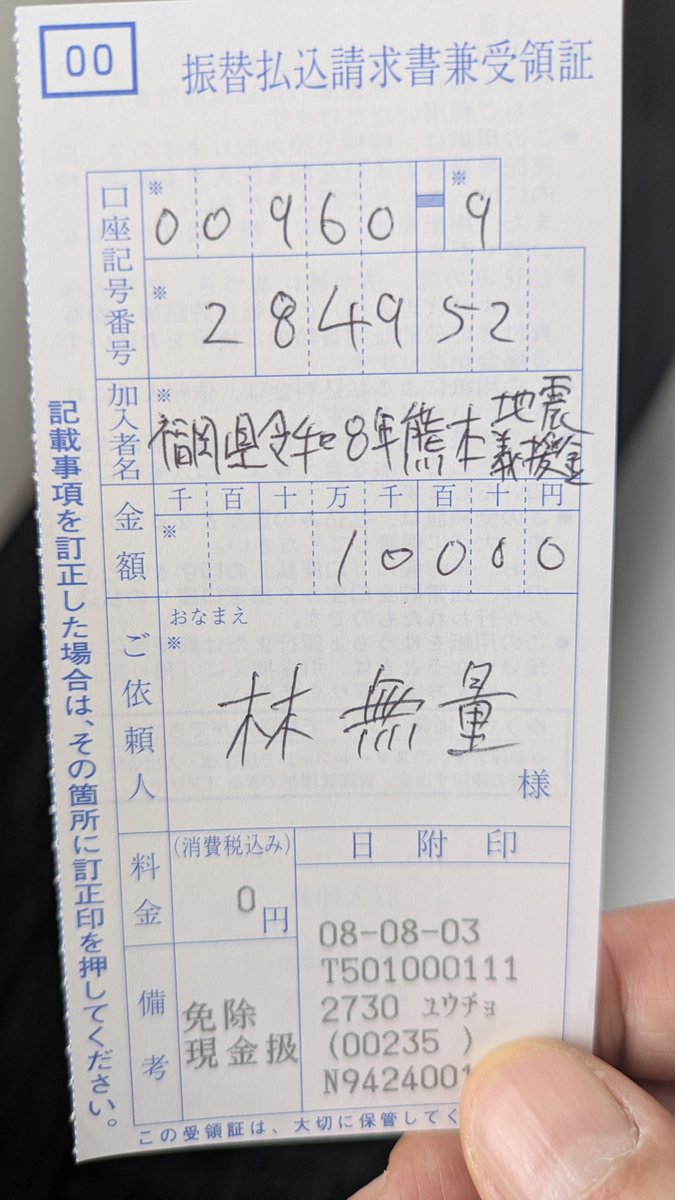 00
振替払込請求書兼受領証
口座記号番号
※
※
00960-9
※
284952
加入者名
※
福岡県令和8年熊本地震義援金
金額
千百十万千百十円
※
10000
ご依頼人
おなまえ
※
林無量
様
料金
(消費税込み)
0円
備考
免除
現金扱
日附印
08-08-03
T501000111
2730 ユウチョ
(00235 )
N9424001
この受領証は、大切に保管してく
記載事項を訂正した場合は、その箇所に訂正印を押してください。